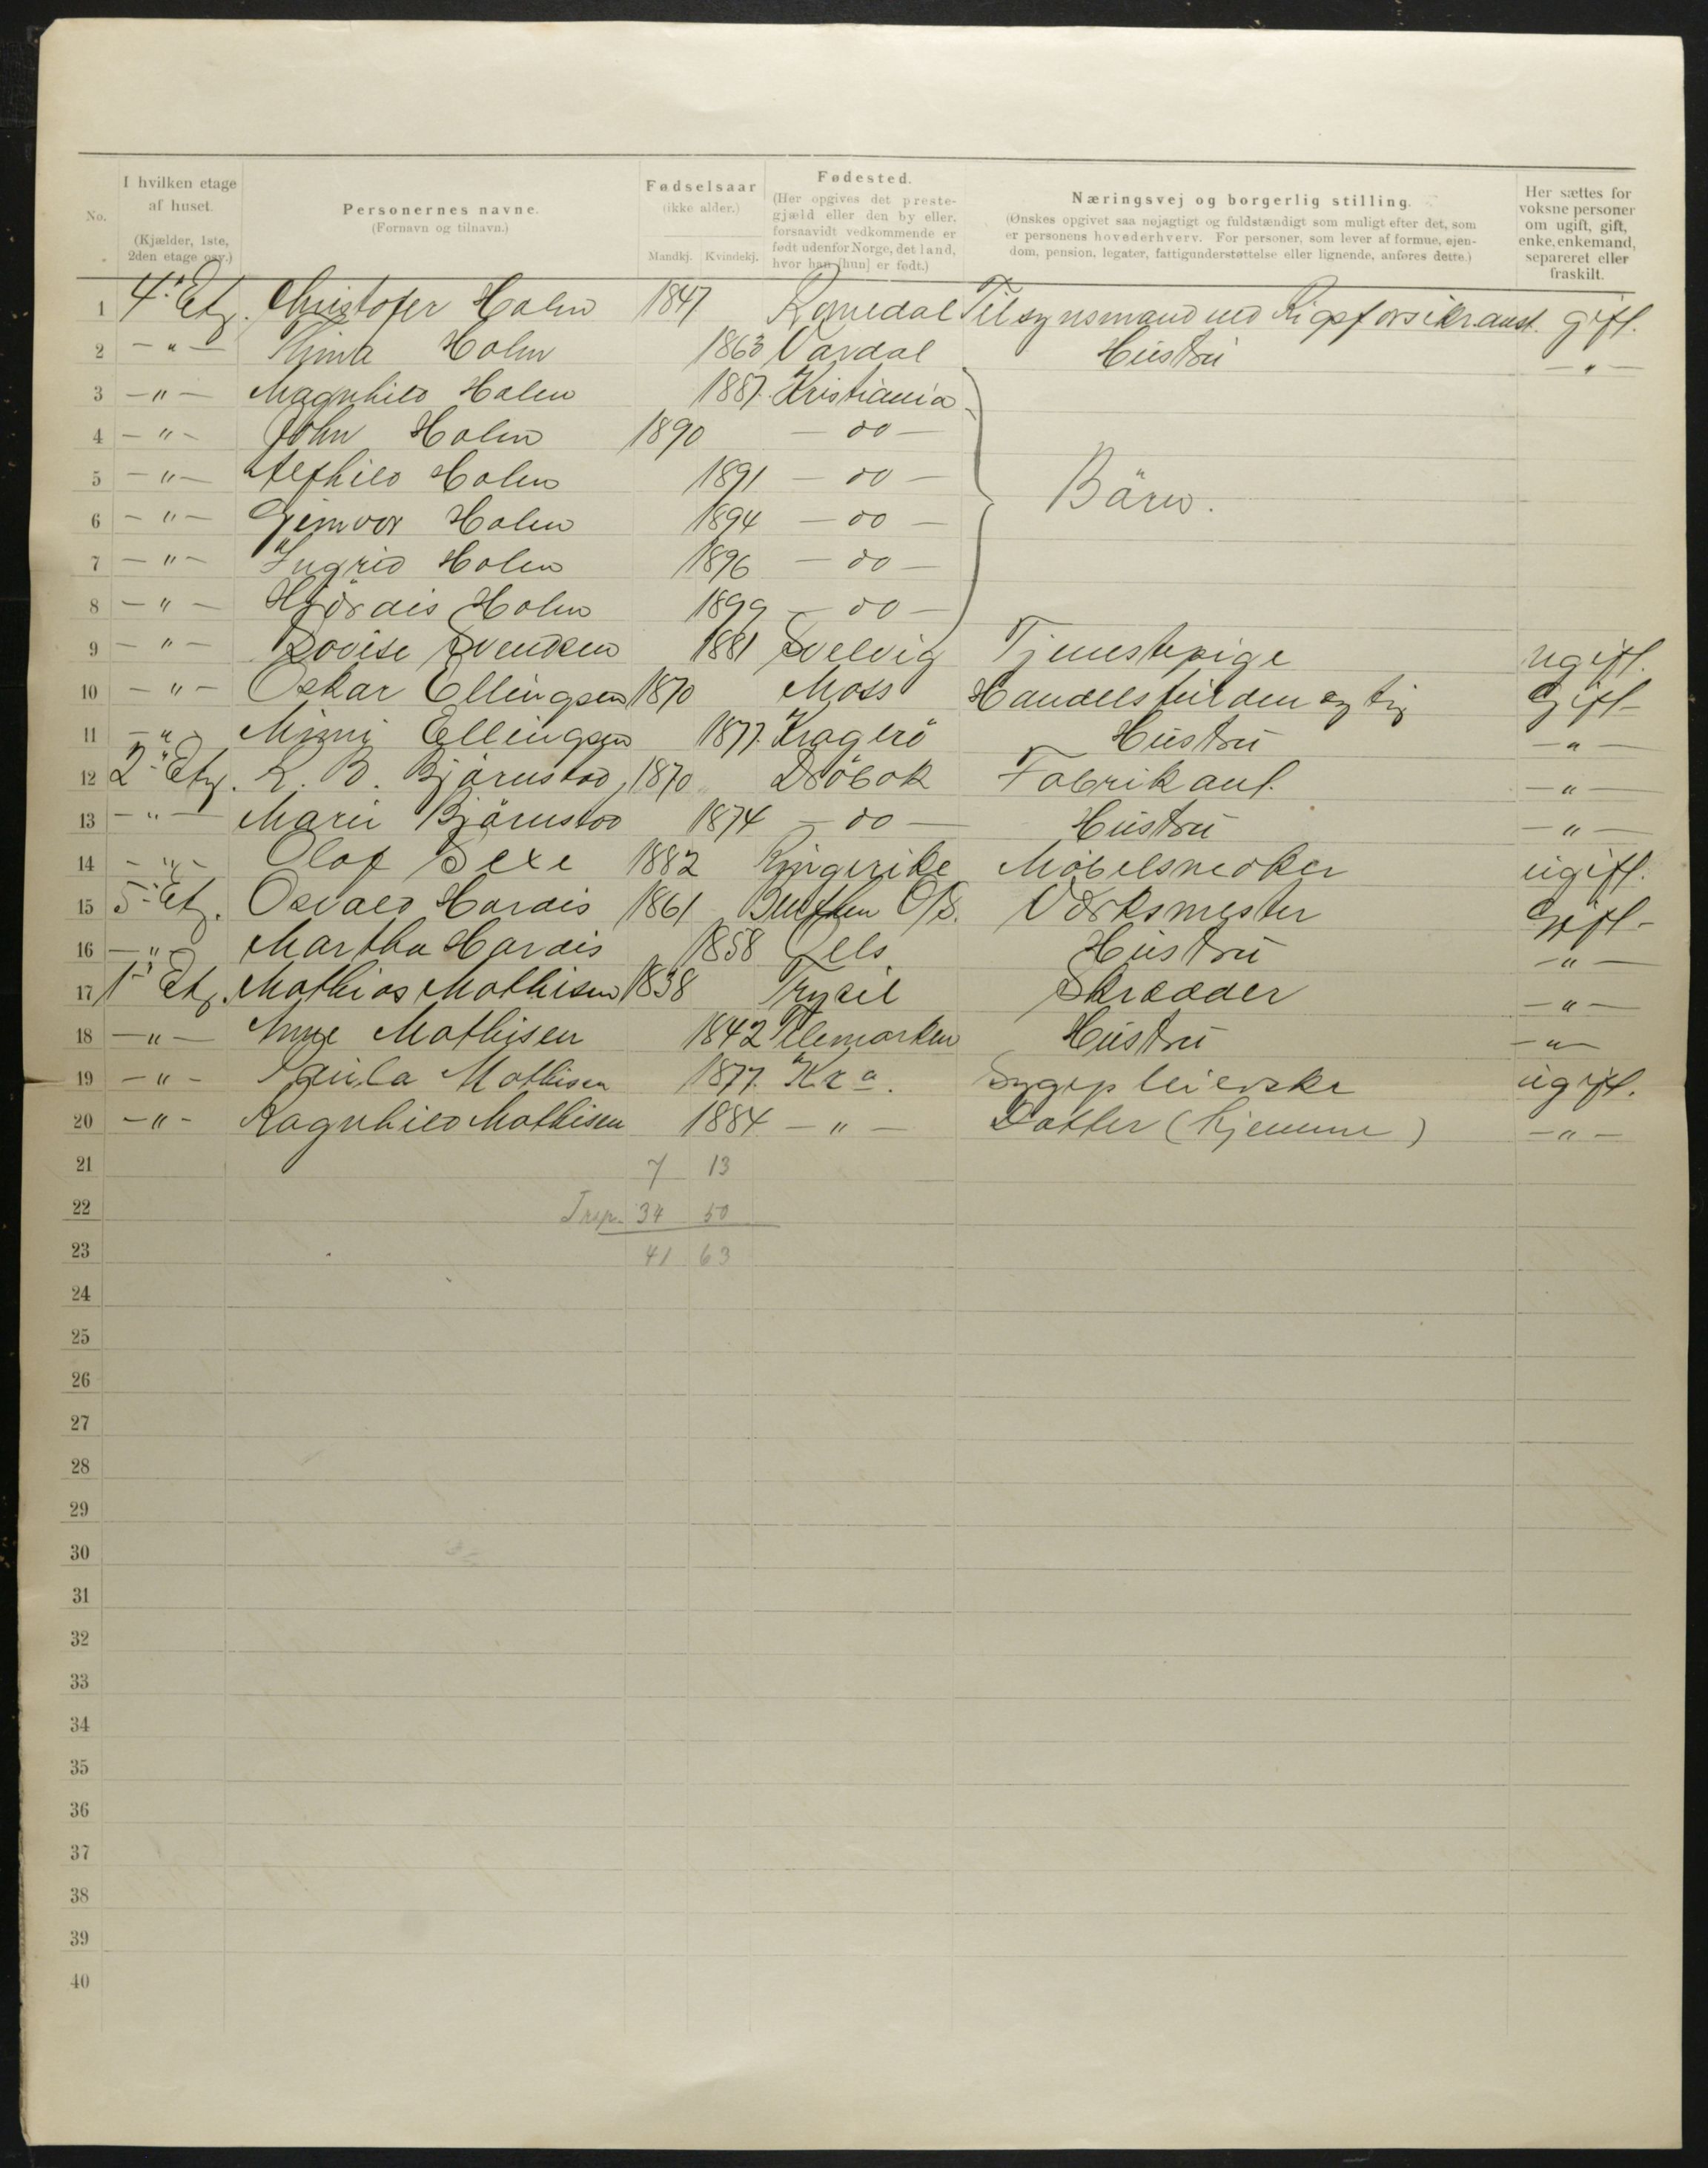 No.
I hvilken etage af huset.
(Kjælder, 1ste, 2den etage osv.)
Personernes navne.
(Fornavn og tilnavn.)
Fødselsaar
(ikke alder.)
Mandkj. Kvindekj.
Fødested.
(Her opgives det prestegjæld eller den by eller, forsaavidt vedkommende er født udenfor Norge, det land, hvor han [hun] er født.)
Næringsvej og borgerlig stilling.
(Ønskes opgivet saa nøjagtigt og fuldstændigt som muligt efter det, som er personens hovederhverv. For personer, som lever af formue, ejendom, pension, legater, fattigunderstøttelse eller lignende, anføres dette.)
Her sættes for voksne personer om ugift, gift, enke, enkemand, separeret eller fraskilt.
1 4. Etg. Christofer Holm 1847 Romedal Tilsynsmand ved Rigsforsikr.anst. gift.
2 —"— Holm 1863 Vardal Hustru —"—
3 —"— Magnhild Holm 1887. Kristiania
4 —"— John Holm 1890 — do —
5 —"— Alfhild Holm 1891 — do —
6 —"— Gjimvor Holm 1894 — do — Børn.
7 —"— Ingrid Holm 1896 — do —
8 —"— Hjørdis Holm 1899 — do —
9 —"— Lovise Svendsen 1881 Svelvig Tjenestepige ugift.
10 —"— Oskar Ellingsen 1870 Moss Gift
11 —"— Minni Ellingsen 1877. Kragerö Hustru —"—
12 2. Etg. K. B. Bjørnstad, 1870 Dröbak Fabrikant. —"—
13 —"— Marie Bjørnstad 1874 — do — Hustru —"—
14 —"— Olaf Sexe 1882 Ringerike Möbelsnedker ugift.
15 5. Etg. Osvald Hardis 1861 Beuthen O/S. Værksmester Gift
16 —"— Martha Hardis 1858 Oels Hustru —"—
17 1. Etg. Mathias Mathisen 1838 Trysil Skrædder —"—
18 —"— Anne Mathisen 1842 Telemarken Hustru —"—
19 —"— Paula Mathisen 1877. Kr.a. Sygepleierske ugift.
20 —"— Ragnhild Mathisen 1884 —"— Datter (hjemme) —"—
21 7 13
22 Trsp. 34 50
23 41 63
24
25
26
27
28
29
30
31
32
33
34
35
36
37
38
39
40